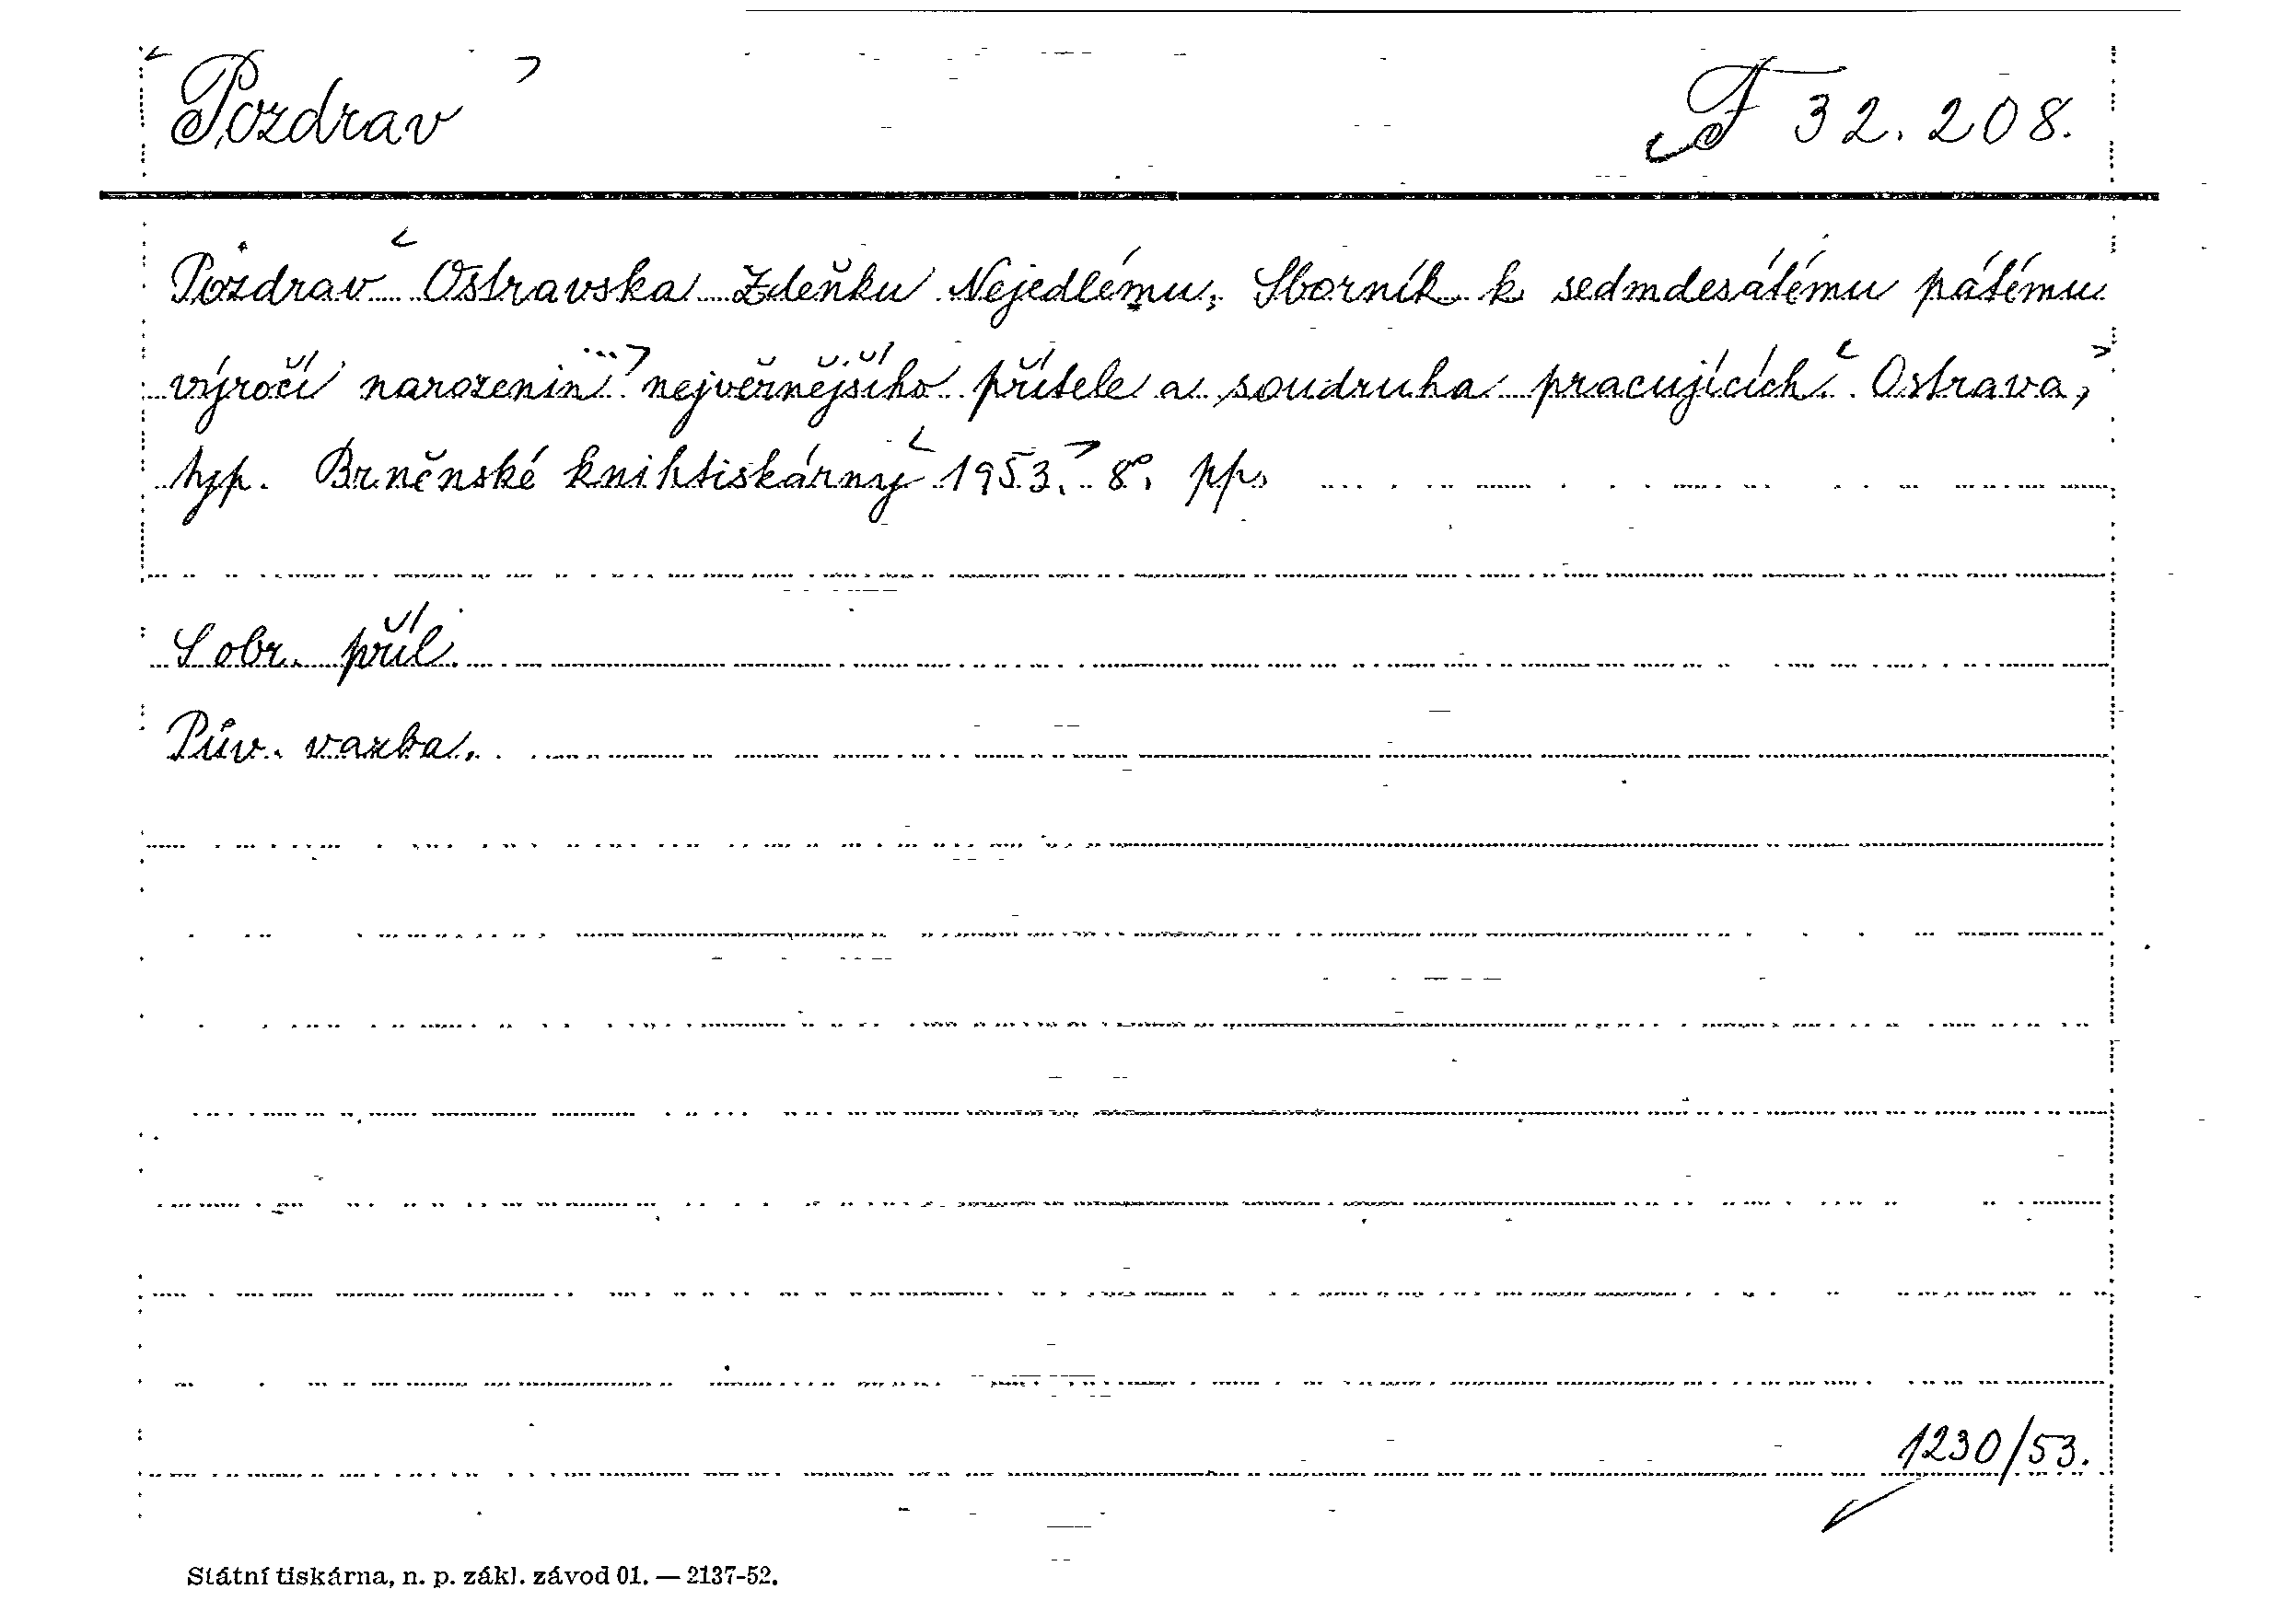 Pozdrav
F 32.208.
Pozdrav Ostravska Zdeňku Nejedlému. Sborník k sedmdesátému pátému
výročí narozenin nejvěrnějšího přítele a soudruha pracujících. Ostrava,
typ. Brněnské knihtiskárny 1953. 8°. pp.
S obr. příl.
Pův. vazba.
1230/53.
Státní tiskárna, n. p. zákl. závod 01. — 2137-52.